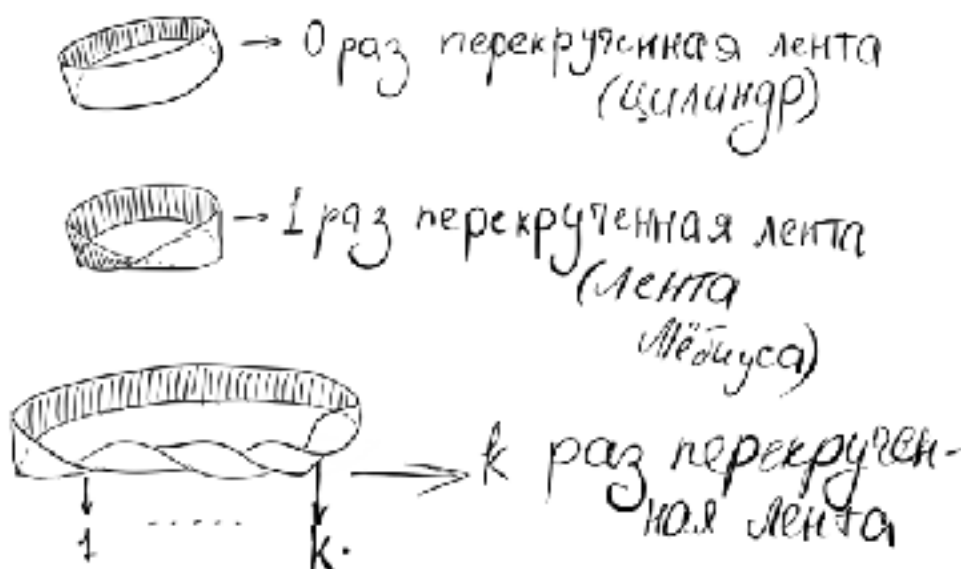 → 0 раз перекрученная лента
(цилиндр)
→ 1 раз перекрученная лента
(лента
Мёбиуса)
→ k раз перекручен-
ная лента
1 ..... k.